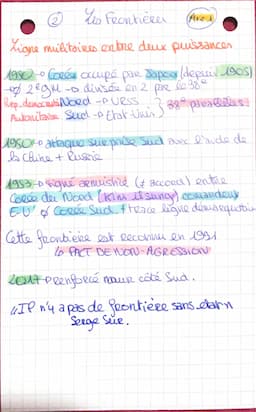 ② Les Frontières Axe 1
Ligne militaires entre deux puissances
Corée occupé par Japon (depuis 1905)
2e GM → divisée en 2 par le 38e
Rep. democrati Nord → URSS
Autoritaire Sud → Etat Unis } 38e parallèles
1950 → attaque surprise Sud avec l'aide de
la Chine + Russie
1953 → signé armistice (≠ accord) entre
Corée du Nord (Kim il sung) commandeur
E.U Corée Sud. trace ligne démarquation
Cette frontière est reconnu en 1991
↳ PACT DE NON-AGRESSION
2017 → renforcé mur côté Sud.
"Il n'y a pas de frontière sans état"
Serge Sur.